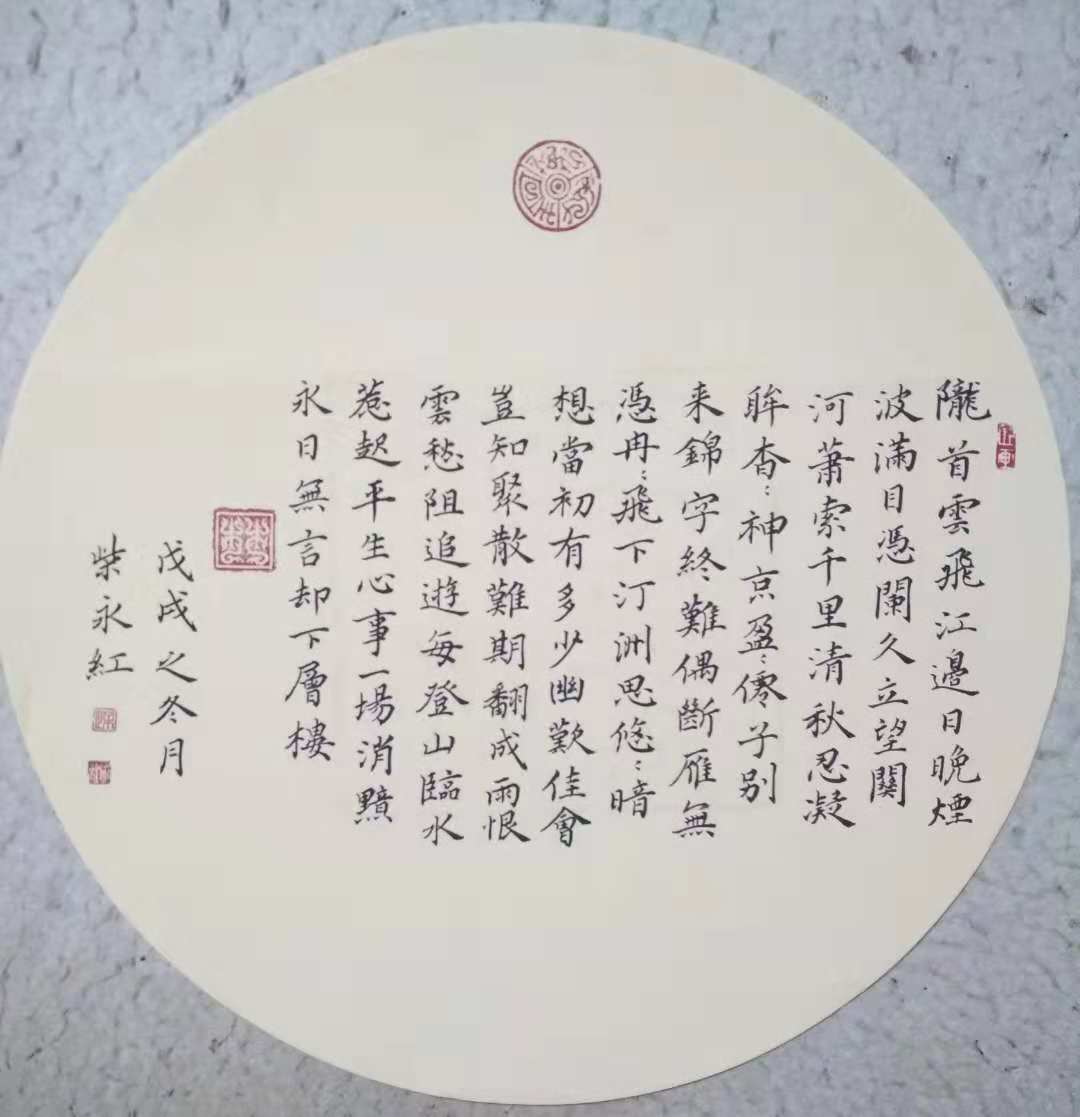 隴首雲飛江邊日晚煙
波滿目憑闌久立望關
河蕭索千里清秋忍凝
眸杳〻神京盈〻僊子别
来錦字終難偶斷雁無
憑冉〻飛下汀洲思悠〻暗
想當初有多少幽歡佳會
豈知聚散難期翻成雨恨
雲愁阻追遊每登山臨水
惹起平生心事一場消黯
永日無言却下層樓
戊戌之冬月
柴永紅